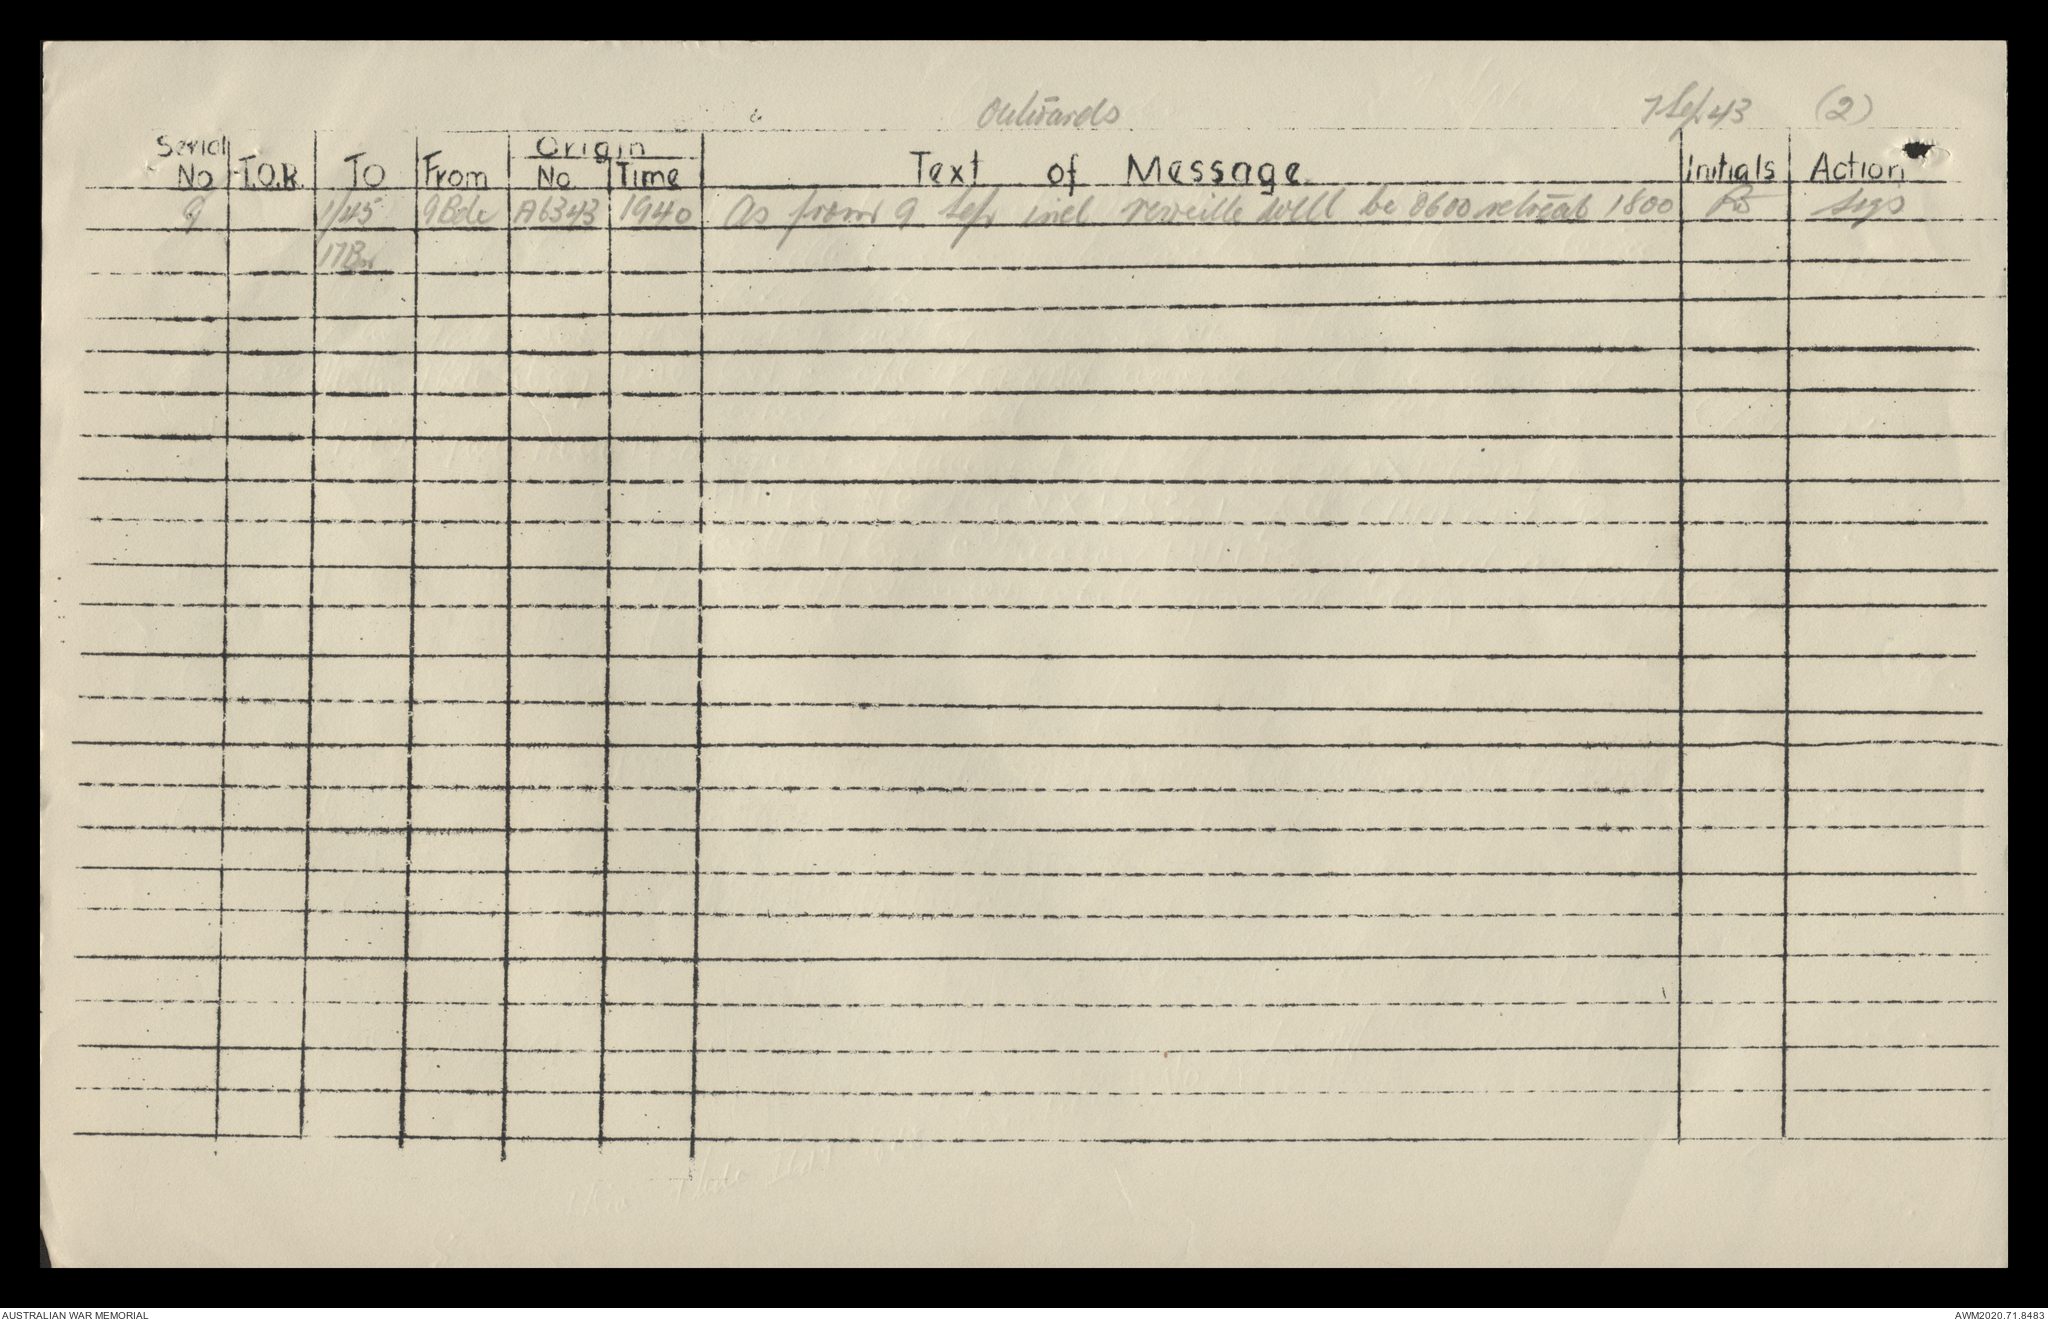 Outwards 7 Sep 43 (2)
Serial No T.O.R. To From Origin No. Time Text of Message Initials Action
9 1/45 9 Bde A6343 1940 As from 9 Sep incl reveille will be 0600 retreat 1800 Sigs
17 Bn
AUSTRALIAN WAR MEMORIAL AWM2020.71.8483